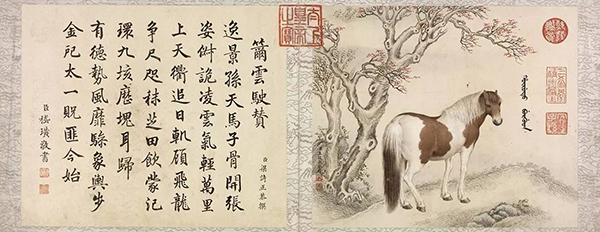 籋雲駛贊
逸景孫天馬子骨開張
姿俶詭凌雲氣輕萬里
上天衢追日軌顧飛龍
爭尺咫秣芝田飲蒙汜
環九垓歷塊耳歸
有德勢風靡驂象輿步
金戺太一貺匪今始
臣梁詩正恭撰
臣嵇璜敬書